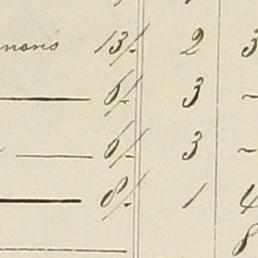 13/- 2 3
6/- 3 ~
6/- 3 ~
8/- 1 4
8